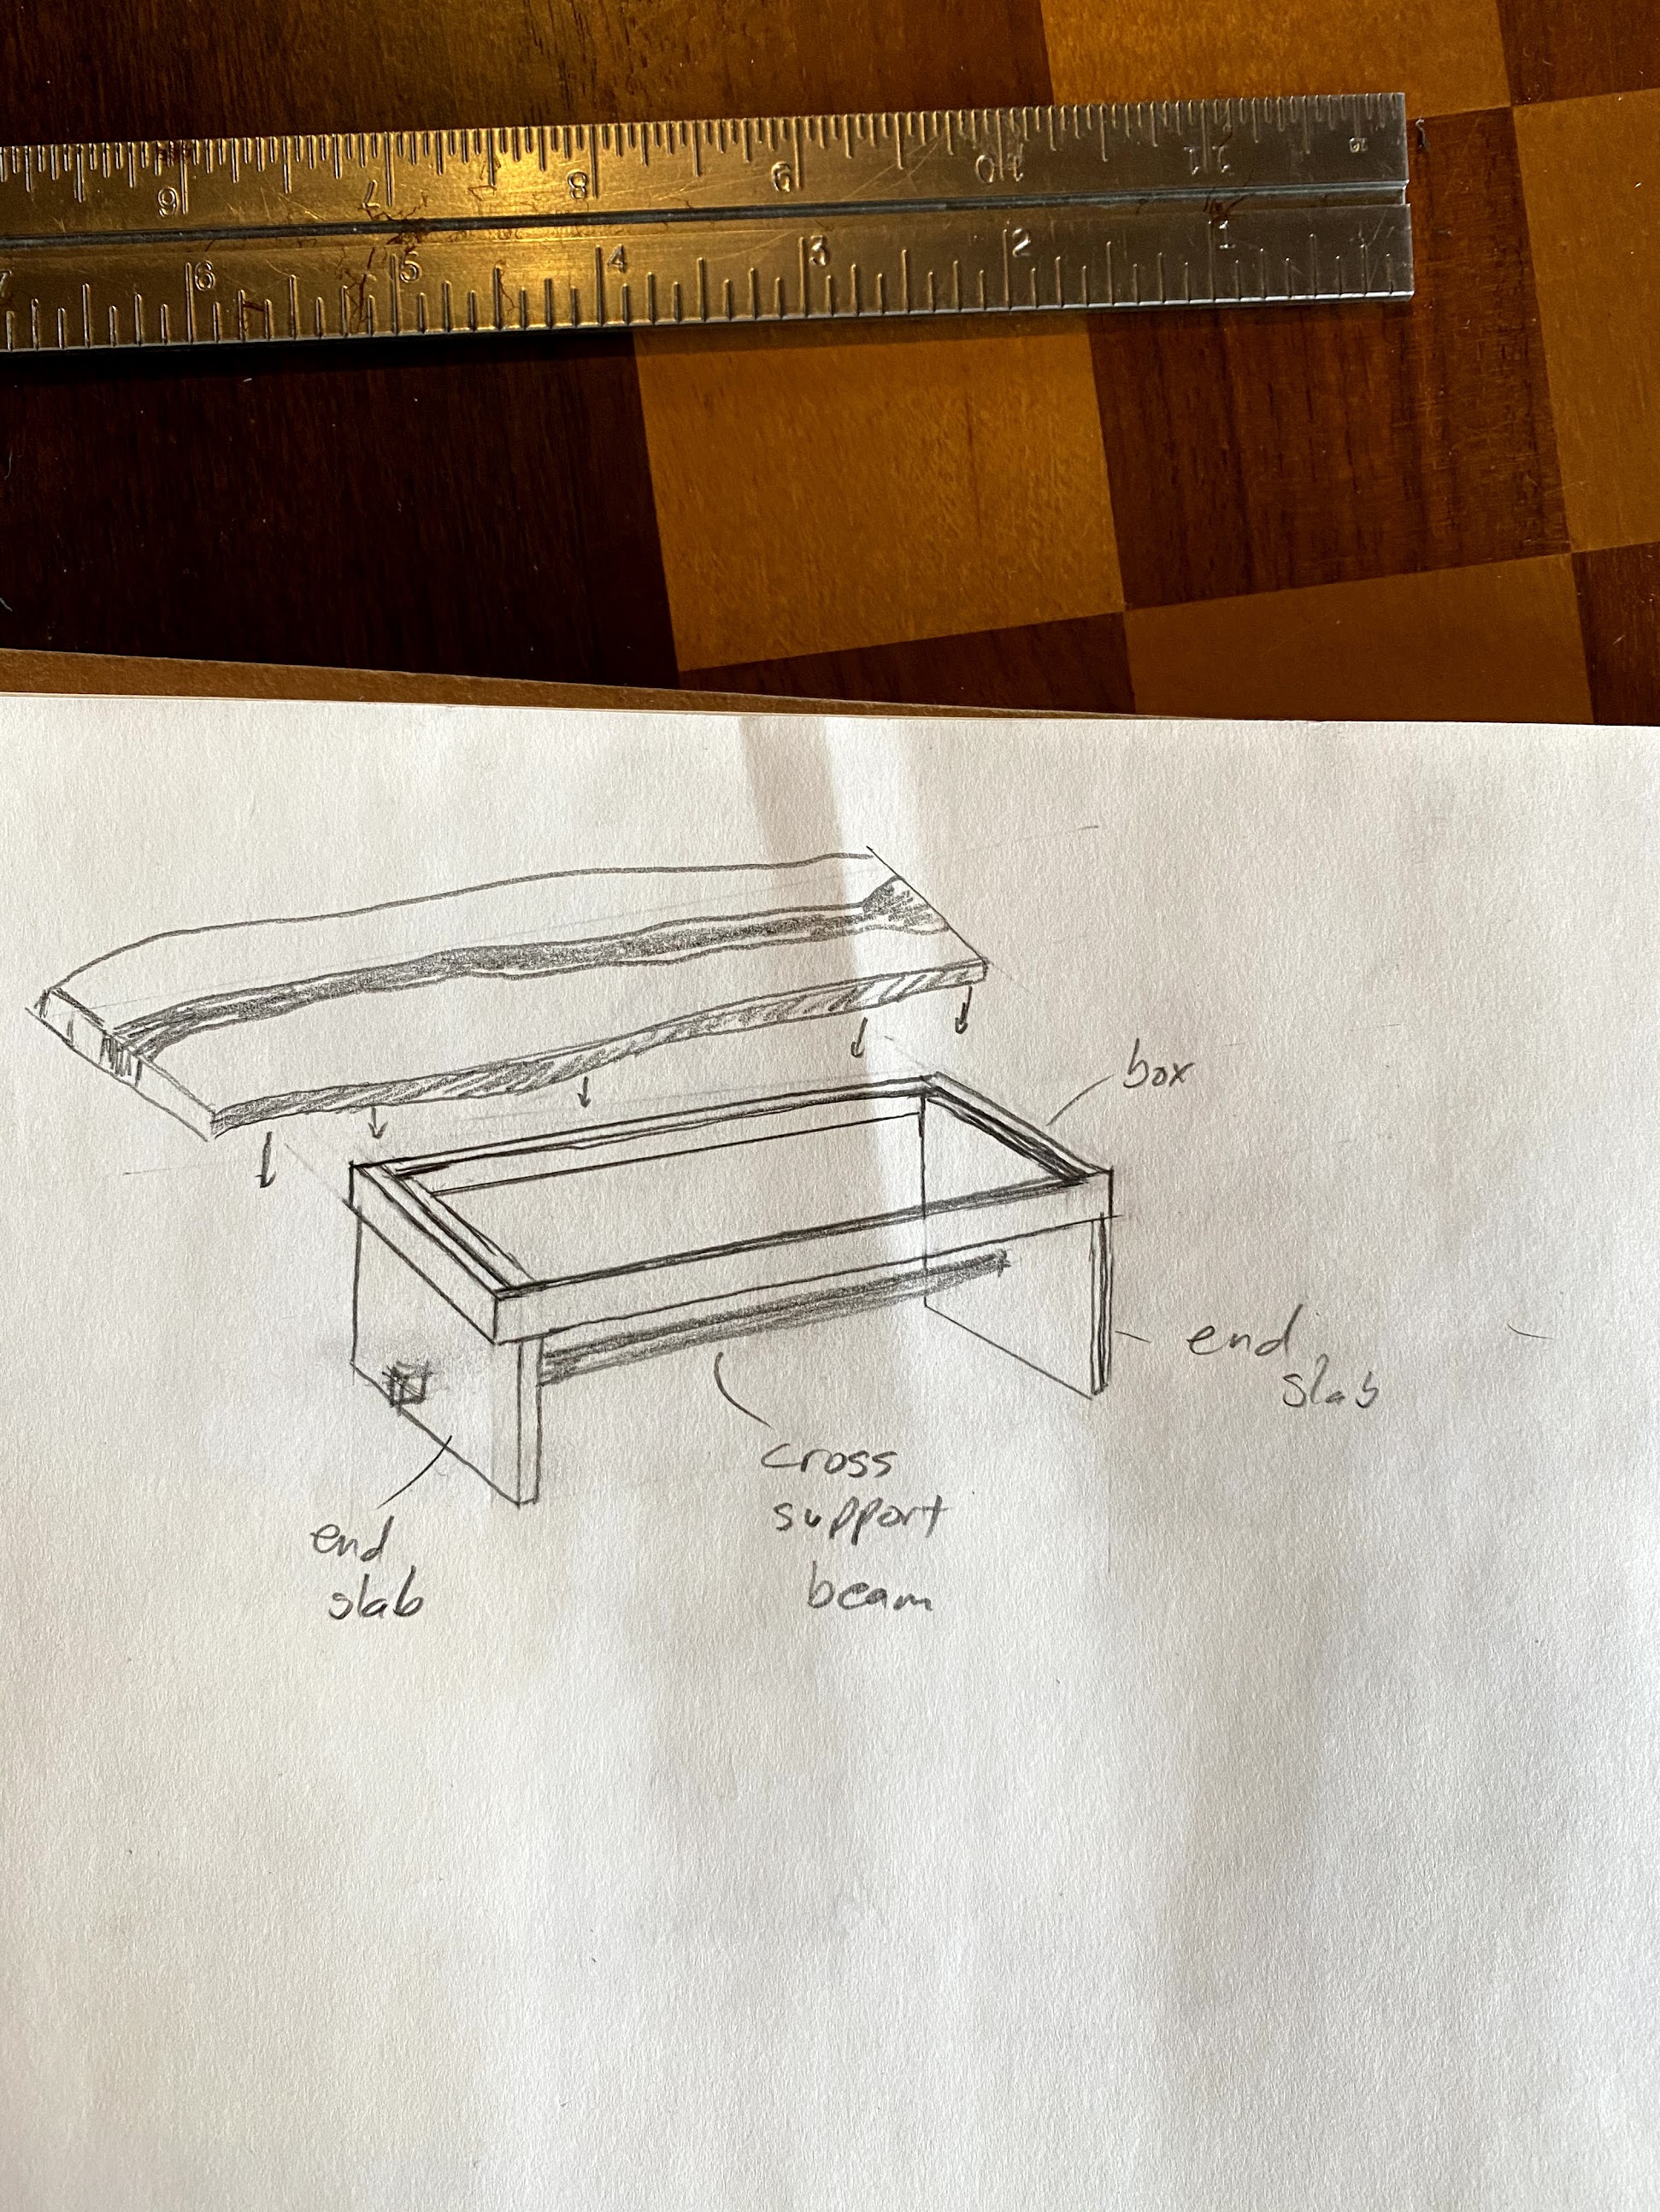 6 7 8 9 10 11
7 6 5 4 3 2 1
box
end
slab
cross
support
beam
end
slab